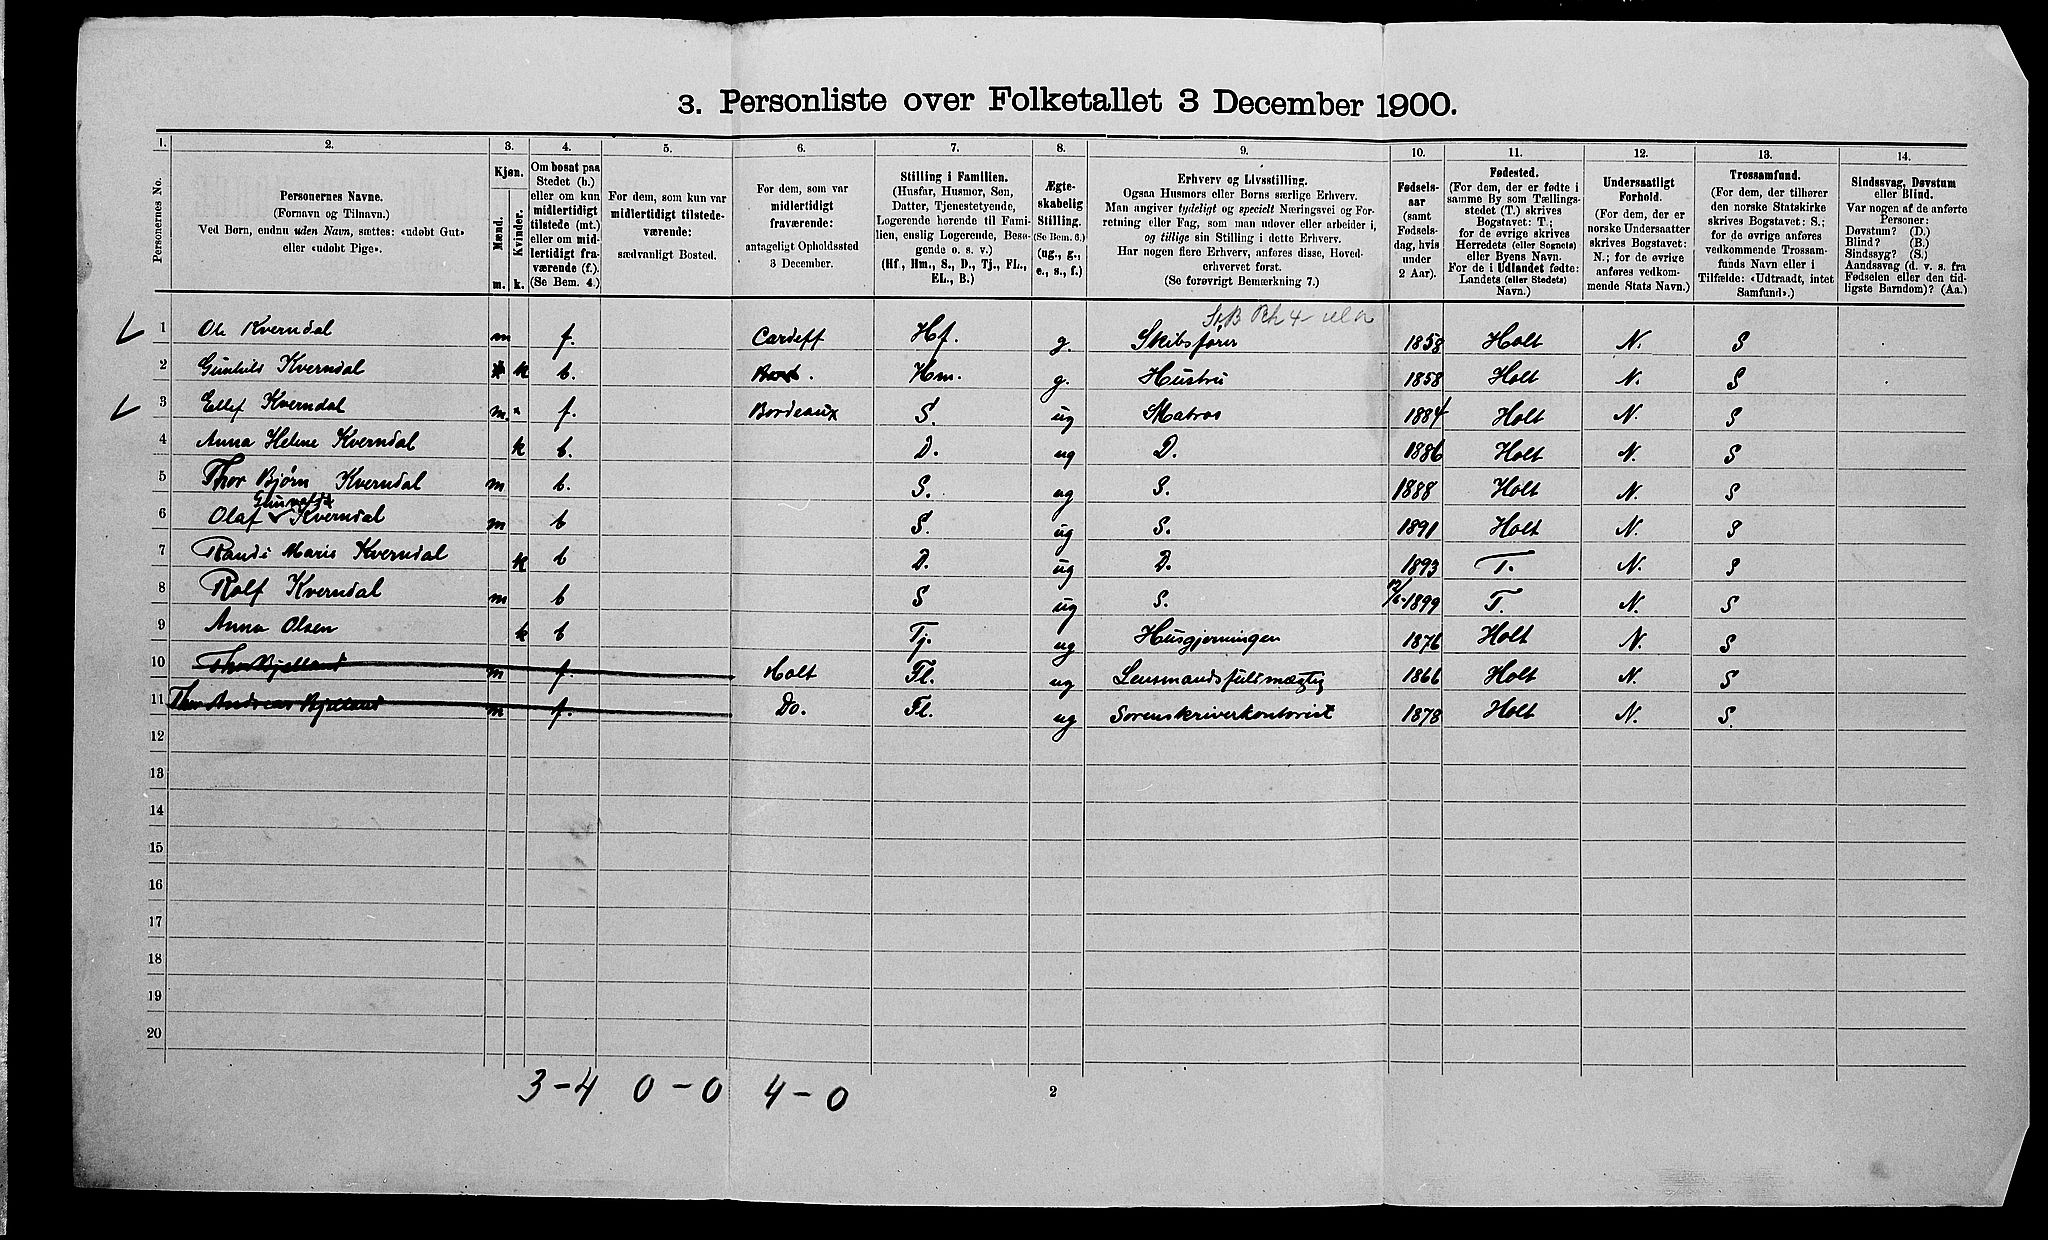 3. Personliste over Folketallet 3 December 1900.
1. 2. 3. 4. 5. 6. 7. 8. 9. 10. 11. 12. 13. 14.
Personernes No.
Personernes Navne.
(Fornavn og Tilnavn.)
Ved Børn, endnu uden Navn, sættes: «udøbt Gut»
eller «udøbt Pige».
Kjøn.
Mænd.
Kvinder.
m. k.
Om bosat paa
Stedet (b.)
eller om kun
midlertidigt
tilstede (mt.)
eller om mid-
lertidigt fra-
værende (f.).
(Se Bem. 4.)
For dem, som kun var
midlertidigt tilstede-
værende:
sædvanligt Bosted.
For dem, som var
midlertidigt
fraværende:
antageligt Opholdssted
3 December.
Stilling i Familien.
(Husfar, Husmor, Søn,
Datter, Tjenestetyende,
Logerende hørende til Fami-
lien, enslig Logerende, Besø-
gende o. s. v.)
(Hf., Hm., S., D., Tj., FL.,
EL., B.)
Ægte-
skabelig
Stilling.
(Se Bem. 6.)
(ug., g.,
e., s., f.)
Erhverv og Livsstilling.
Ogsaa Husmors eller Børns særlige Erhverv.
Man angiver tydeligt og specielt Næringsvei og For-
retning eller Fag, som man udøver eller arbeider i,
og tillige sin Stilling i dette Erhverv.
Har nogen flere Erhverv, anføres disse, Hoved-
erhvervet først.
(Se forøvrigt Bemærkning 7.)
Fødsels-
aar
(samt
Fødsels-
dag, hvis
under
2 Aar).
Fødested.
(For dem, der er fødte i
samme By som Tællings-
stedet (T.) skrives
Bogstavet: T.;
for de øvrige skrives
Herredets (eller Sognets)
eller Byens Navn.
For de i Udlandet fødte:
Landets (eller Stedets)
Navn.)
Undersaatligt
Forhold.
(For dem, der er
norske Undersaatter
skrives Bogstavet:
N.; for de øvrige
anføres vedkom-
mende Stats Navn.)
Trossamfund.
(For dem, der tilhører
den norske Statskirke
skrives Bogstavet: S.;
for de øvrige anføres
vedkommende Trossam-
funds Navn eller i
Tilfælde: «Udtraadt, intet
Samfund».)
Sindssvag, Døvstum
eller Blind.
Var nogen af de anførte
Personer:
Døvstum? (D.)
Blind? (B.)
Sindssyg? (S.)
Aandssvag (d. v. s. fra
Fødselen eller den tid-
ligste Barndom)? (Aa.)
1 Ole Kverndal m f. Cardeff Hf. g. Skibsfører 1858 Holt N. S
2 Gunhild Kverndal k b. Hm. g. Hustru 1858 Holt N. S
3 Ellef Kverndal m. f. Bordeaux S. ug Matros 1884 Holt N. S
4 Anna Helene Kverndal k b. D. ug D. 1886 Holt N. S
5 Thor Bjørn Kverndal m b. S. ug S. 1888 Holt N. S
6 Olaf Kverndal m b S. ug S. 1891 Holt N. S
7 Randi Marie Kverndal k b D. ug D. 1893 T. N. S
8 Rolf Kverndal m b S ug S. 1899 T. N. S
9 Anna Olsen k b Tj. ug Husgjerningen 1876 Holt N. S
10 Thor Bjelland m f. Holt FL. ug Lensmandsfuldmægtig 1866 Holt N. S
11 Thor Andreas Bjelland m f. Do. FL. ug Sorenskriverkontorist 1878 Holt N. S.
12
13
14
15
16
17
18
19
20
3-4 0-0 4-0
2